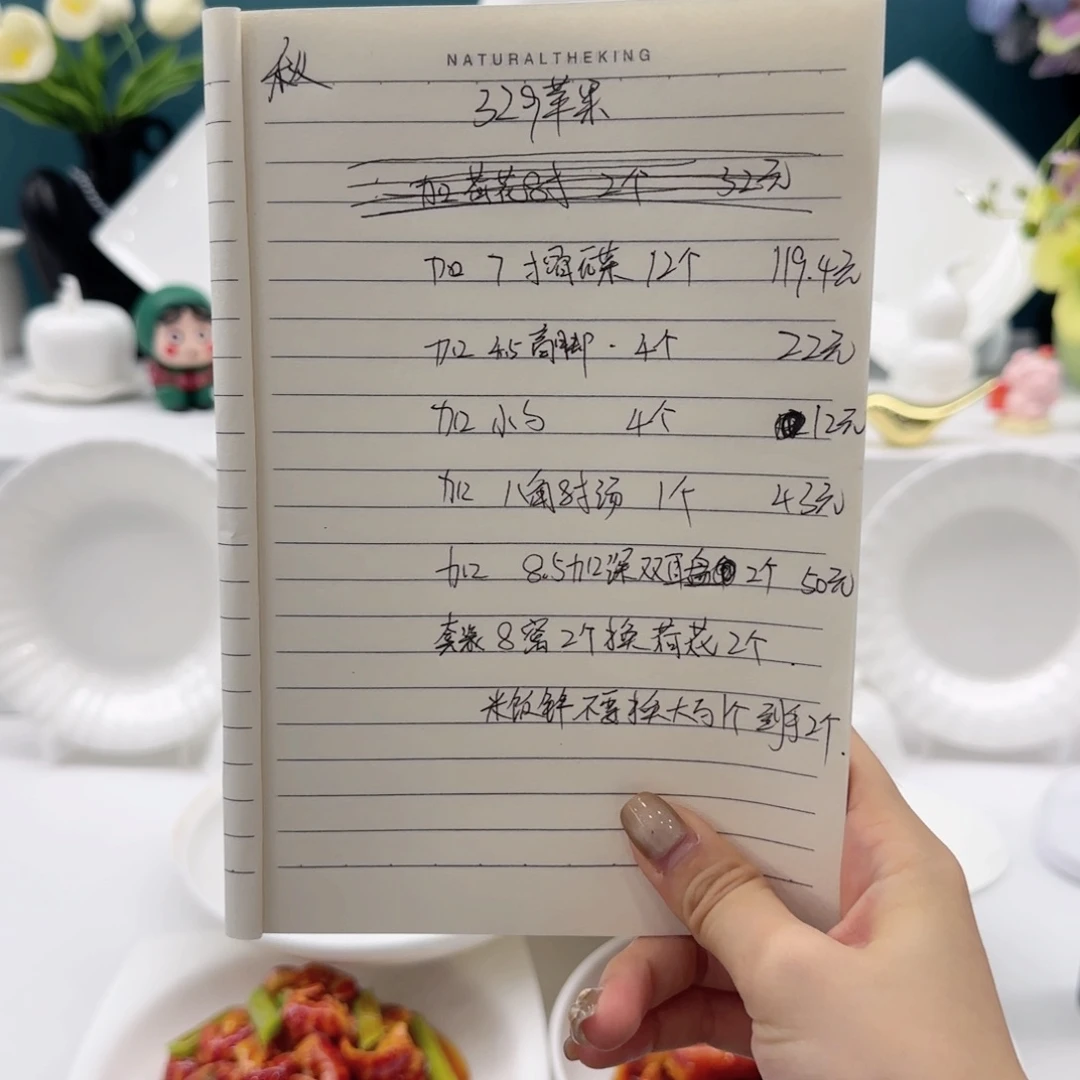 秋
NATURALTHEKING
329苹果
加荷花8寸 2个 32元
加 7寸 12个 119.4元
加 4.5高脚 · 4个 22元
加 小勺 4个 12元
加 八角8寸汤 1个 43元
加 8.5加深双耳盘 2个 50元
套装 8窝 2个换荷花2个.
米饭 不要换大勺1个 到手2个.